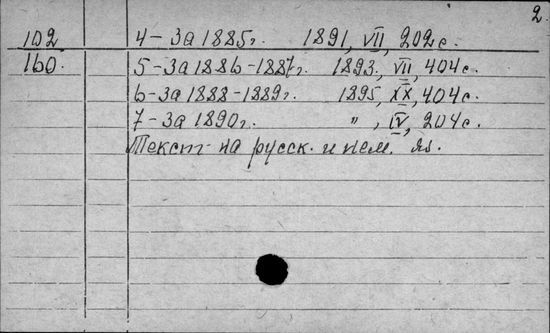 2.
102 4-За 1885г. 1891, VII, 202с.
160. 5-За 1886-1887г. 1893, VII, 404с.
6-За 1888-1889г. 1895, XX, 404с.
7-За 1890г. " , IV, 204с.
Текст на русск. и нем. яз.